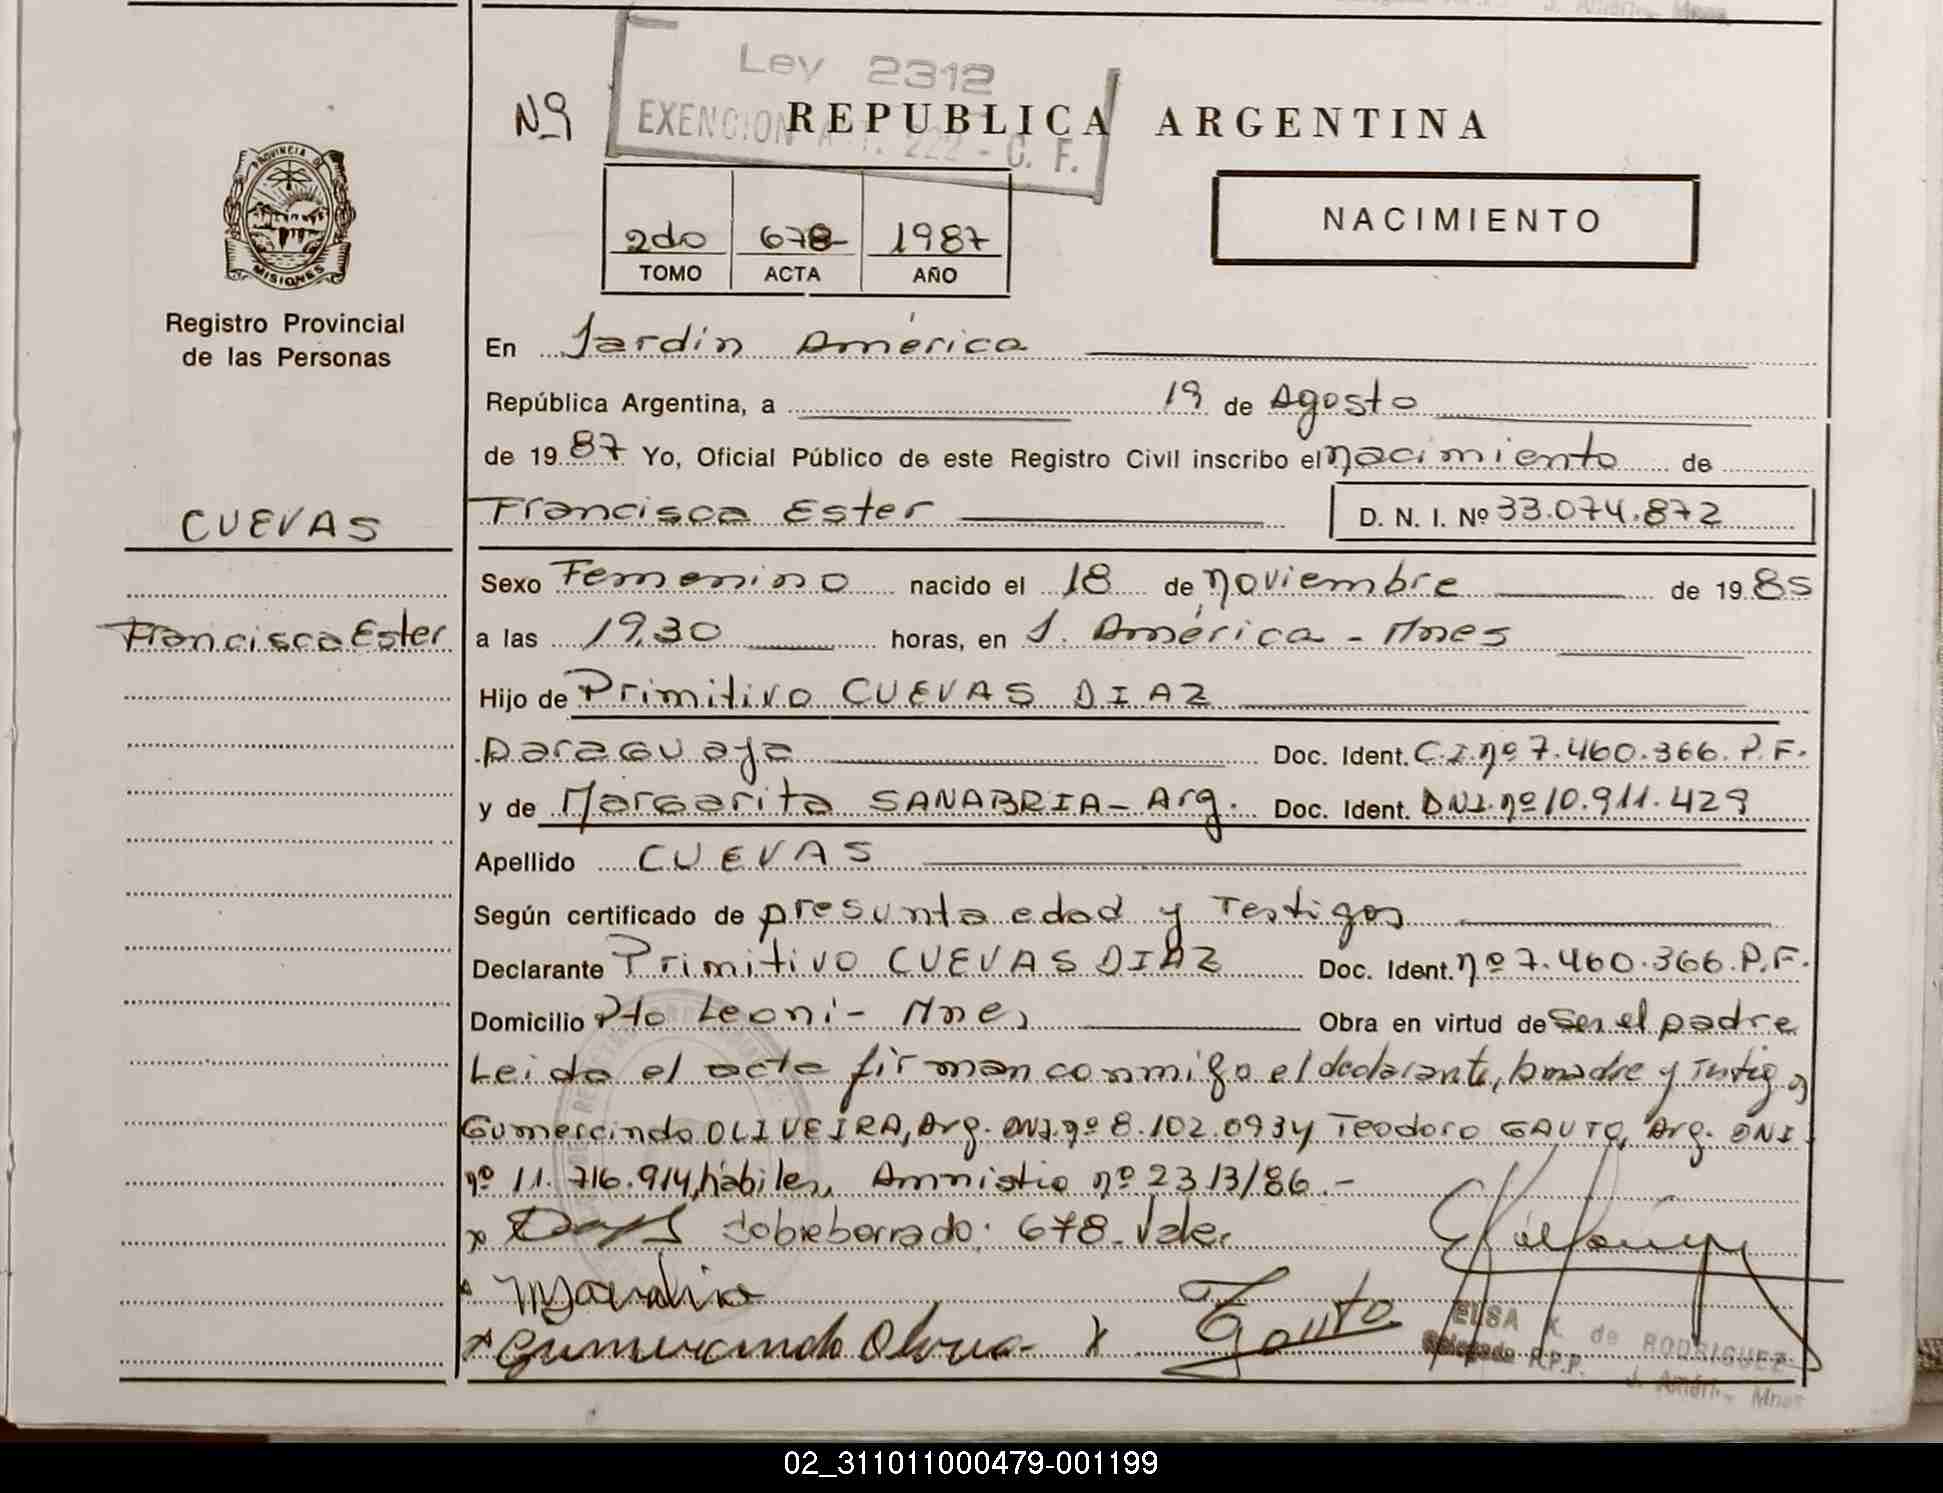 Ley 2312
Nº
EXENCION A T. 222 - C. F.
REPUBLICA ARGENTINA
PROVINCIA D MISIONES
2do 678 1987
TOMO ACTA AÑO
NACIMIENTO
Registro Provincial
de las Personas
En Jardín América
República Argentina, a 19 de Agosto
de 1987 Yo, Oficial Público de este Registro Civil inscribo el nacimiento de
CUEVAS
Francisca Ester D. N. I. Nº 33.074.872
Sexo Femenino nacido el 18 de noviembre de 1985
Francisca Ester
a las 19,30 horas, en J. América - Mnes
Hijo de Primitivo CUEVAS DIAZ
paraguaya Doc. Ident. C.I. nº 7.460.366. P.F.
y de Margarita SANABRIA - Arg. Doc. Ident. DNI. nº 10.911.429
Apellido CUEVAS
Según certificado de presunta edad y Testigos
Declarante Primitivo CUEVAS DIAZ Doc. Ident. nº 7.460.366. P.F.
Domicilio Pto Leoni - Mnes Obra en virtud de Ser el padre
Leida el acta firman conmigo el declarante, la madre y Testigos
Gumercindo OLIVEIRA, Arg. DNI. nº 8.102.093 y Teodoro GAUTO, Arg. DNI
nº 11.716.914, hábiles, Amnistia nº 2313/86.-
x Sobreborrado: 678. Vale.
x Gumercindo Olivera x Gauto
ELSA K. de RODRIGUEZ
Delegada R.P.P.
J. Améri., Mnes
02_311011000479-001199